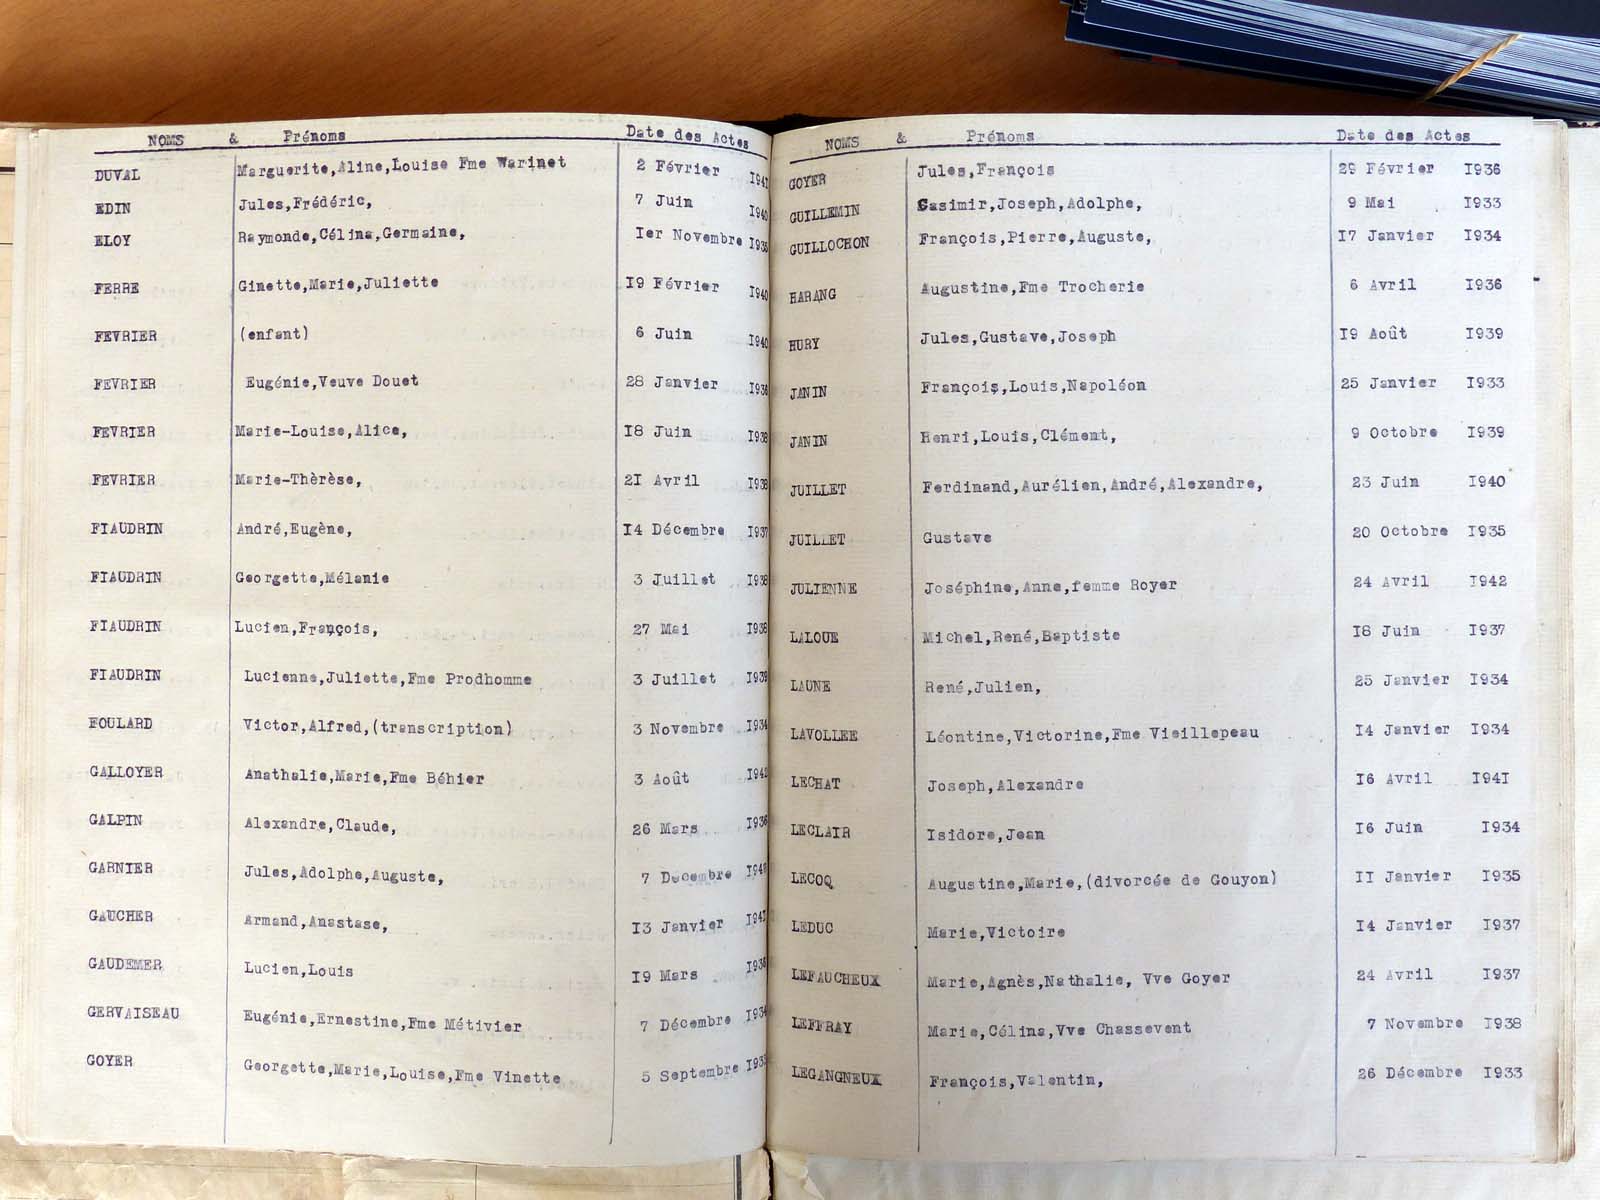 NOMS & Prénoms Date des Actes
DUVAL Marguerite,Aline,Louise Fme Warinet 2 Février
EDIN Jules,Frédéric, 7 Juin 1940
ELOY Raymonde,Célina,Germaine, Ier Novembre
FERRE Ginette,Marie,Juliette I9 Février 1940
FEVRIER (enfant) 6 Juin 1940
FEVRIER Eugénie,Veuve Douet 28 Janvier
FEVRIER Marie-Louise,Alice, I8 Juin I938
FEVRIER Marie-Thèrèse, 2I Avril I938
FIAUDRIN André,Eugène, I4 Décembre I937
FIAUDRIN Georgette,Mélanie 3 Juillet I938
FIAUDRIN Lucien,François, 27 Mai I938
FIAUDRIN Lucienne,Juliette,Fme Prodhomme 3 Juillet I939
FOULARD Victor,Alfred,(transcription) 3 Novembre I934
GALLOYER Anathalie,Marie,Fme Béhier 3 Août I942
GALPIN Alexandre,Claude, 26 Mars I936
GARNIER Jules,Adolphe,Auguste, 7 Décembre
GAUCHER Armand,Anastase, I3 Janvier
GAUDEMER Lucien,Louis I9 Mars
GERVAISEAU Eugénie,Ernestine,Fme Métivier 7 Décembre I934
GOYER Georgette,Marie,Louise,Fme Vinette 5 Septembre
NOMS & Prénoms Date des Actes
GOYER Jules,François 29 Février I936
GUILLEMIN Casimir,Joseph,Adolphe, 9 Mai I933
GUILLOCHON François,Pierre,Auguste, I7 Janvier I934
HARANG Augustine,Fme Trocherie 6 Avril I936
HURY Jules,Gustave,Joseph I9 Août I939
JANIN François,Louis,Napoléon 25 Janvier I933
JANIN Henri,Louis,Clément, 9 Octobre I939
JUILLET Ferdinand,Aurélien,André,Alexandre, 23 Juin I940
JUILLET Gustave 20 Octobre I935
JULIENNE Joséphine,Anne,femme Royer 24 Avril I942
LALOUE Michel,René,Baptiste I8 Juin I937
LAUNE René,Julien, 25 Janvier I934
LAVOLLEE Léontine,Victorine,Fme Vieillepeau I4 Janvier I934
LECHAT Joseph,Alexandre I6 Avril I94I
LECLAIR Isidore,Jean I6 Juin I934
LECOQ Augustine,Marie,(divorcée de Gouyon) II Janvier I935
LEDUC Marie,Victoire I4 Janvier I937
LEFAUCHEUX Marie,Agnès,Nathalie, Vve Goyer 24 Avril I937
LEFFRAY Marie,Célina,Vve Chassevent 7 Novembre I938
LEGANGNEUX François,Valentin, 26 Décembre I933